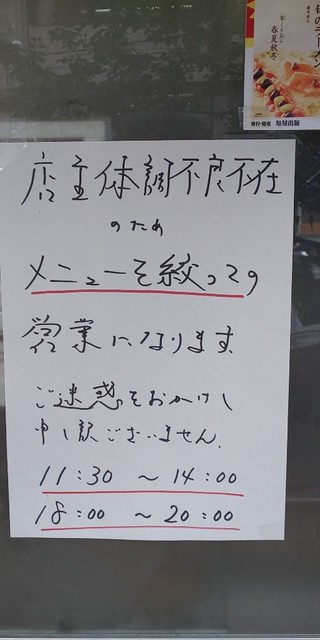 旬のラーメン
春夏秋冬
発行・発売 旭屋出版
店主体調不良不在
のため
メニューを絞っての
営業になります
ご迷惑をおかけし
申し訳ございません.
11:30 ～ 14:00
18:00 ～ 20:00